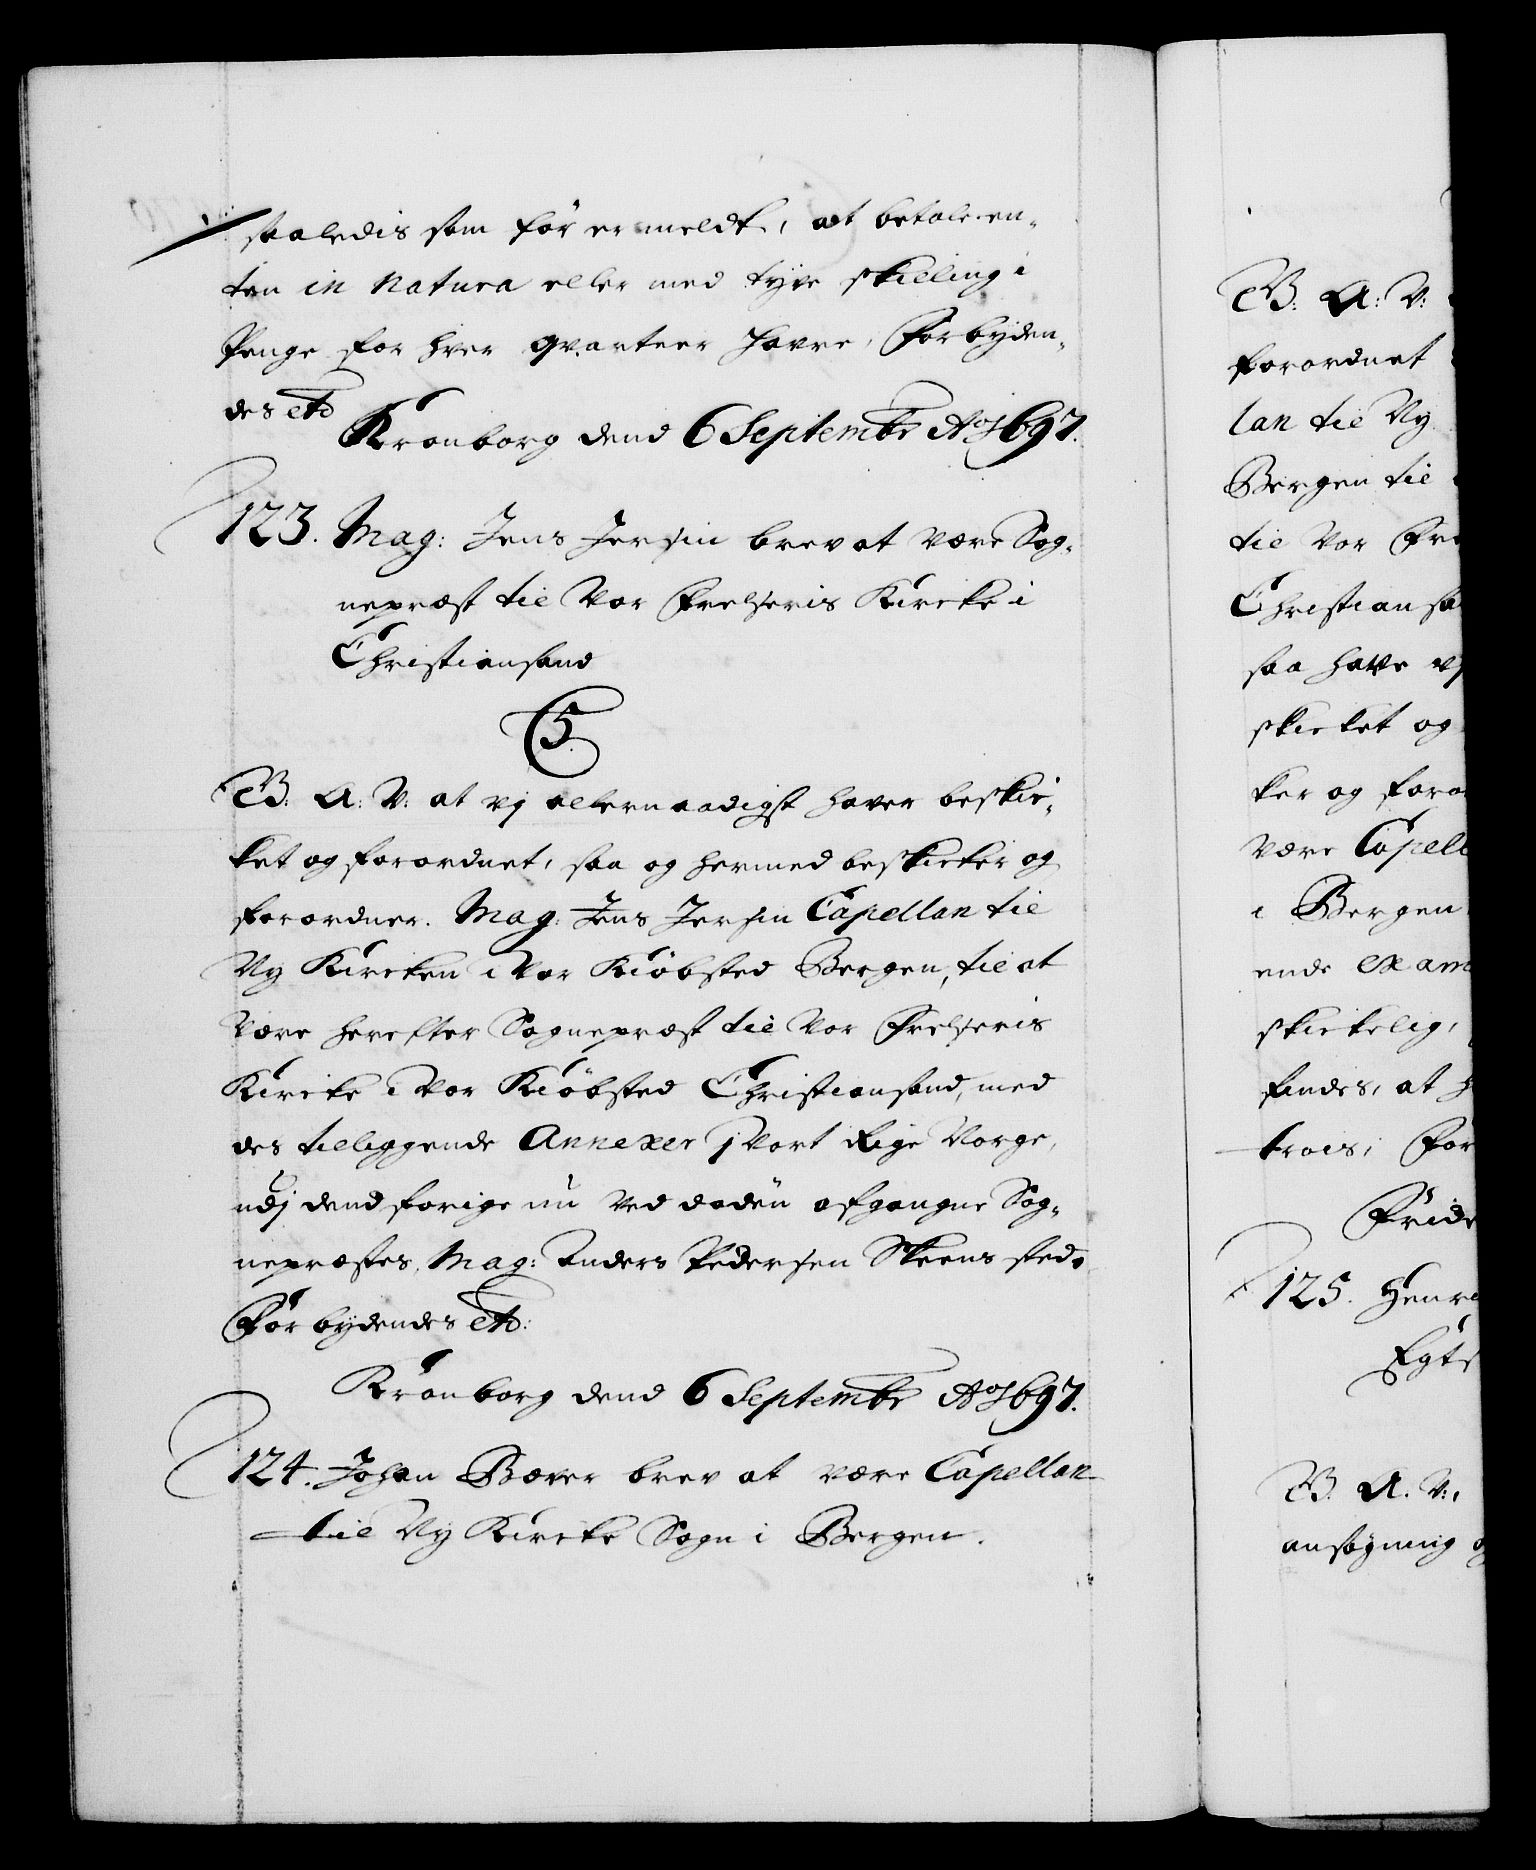 saaledis som før er meldt, at betale en-
ten in natura eller med tyve skilling i
Penge for hver qvarteer Havre, Forbyden-
des etc
Kronborg dend 6 Septembr Ao 1697.
123. Mag: Jens Jersin brev at være Sog-
nepræst til Vor Frelseris Kircke i
Christiansand
C5.
G: A: V: at vj allernaadigst haver beskic-
ket og forordnet, saa og hermed beskicker og
forordner. Mag: Jens Jersin Capellan til
Ny Kircken i Vor Kiøbsted Bergen, til at
være herefter Sognepræst til Vor Frelseris
Kircke i Vor Kiøbsted Christiansand, med
des tilliggende Annexer j Vort Rige Norge,
udj dend forige nu ved døden afgangne Sog-
nepræstes, Mag: Anders Pedersen Skeens sted.
Forbydendes etc:
Kronborg dend 6 Septembr Ao 1697.
124. Johan Bæver brev at være Capellan
til Ny Kircke Sogn i Bergen.
G: A: V:
forordnet
lan til Ny
Bergen til
til Vor Fre
Christiansa
saa have vj
skicket og
ker og foror
være Capell
i Bergen
ende exam
skickelig,
findes, at h
trois, For
Fride
125. Henr
Egts
G. A. V:,
ansøgning og